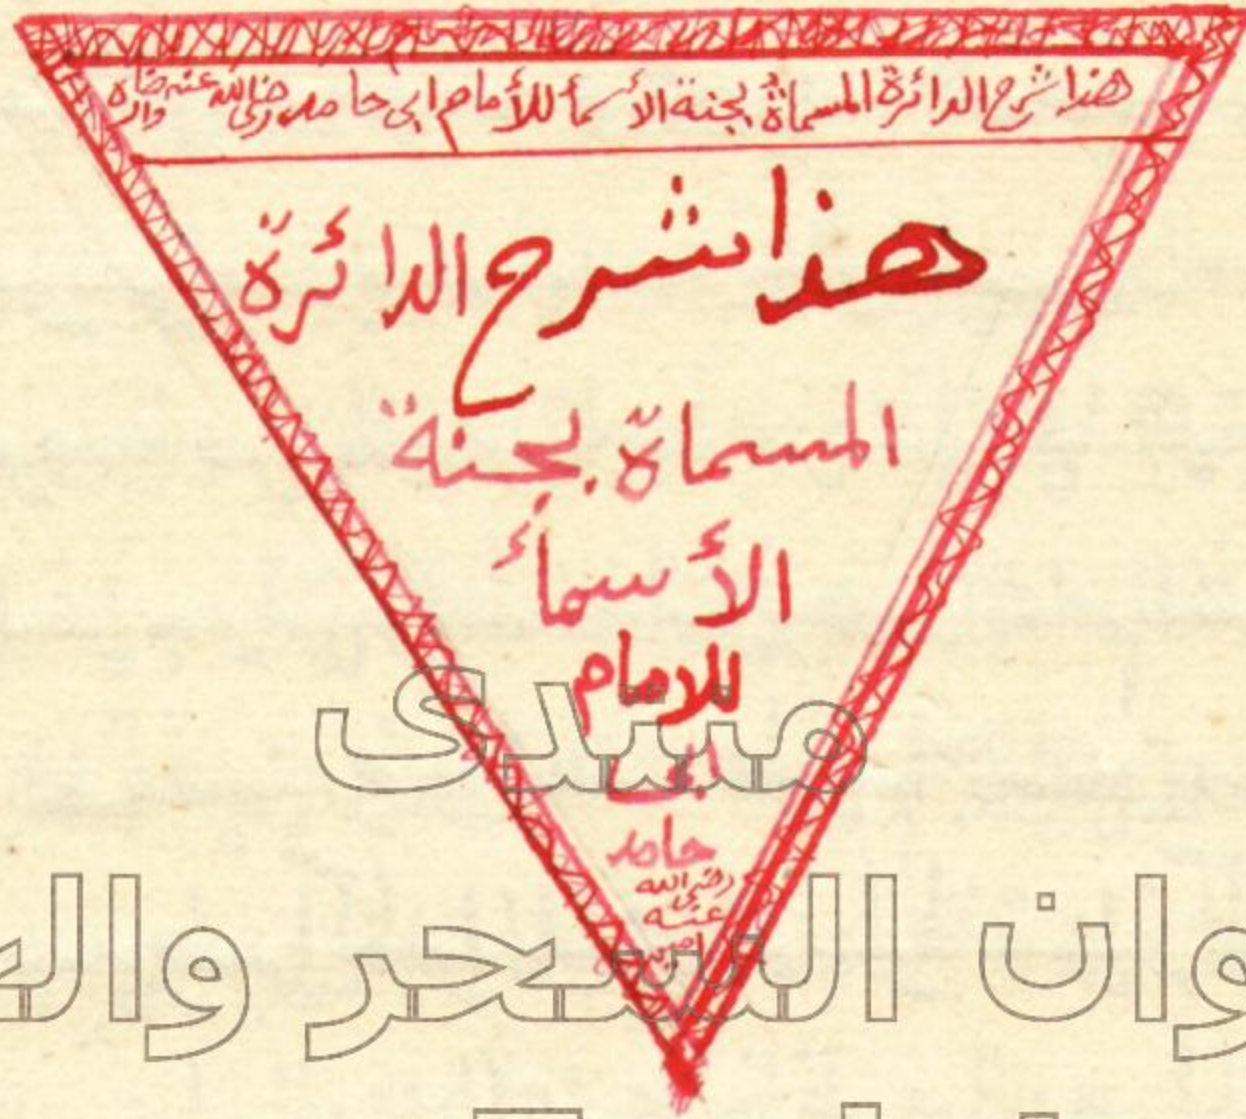 هذا شرح الدائرة المسماة بجنة الأسمأ للأمام ابى حامد رضى الله عنه
هذا شرح الدائرة
المسماة بجنة
الأسمأء
للامام
ابى
حامد
رضى الله
عنه
امين
منتدى
وان السحر والع